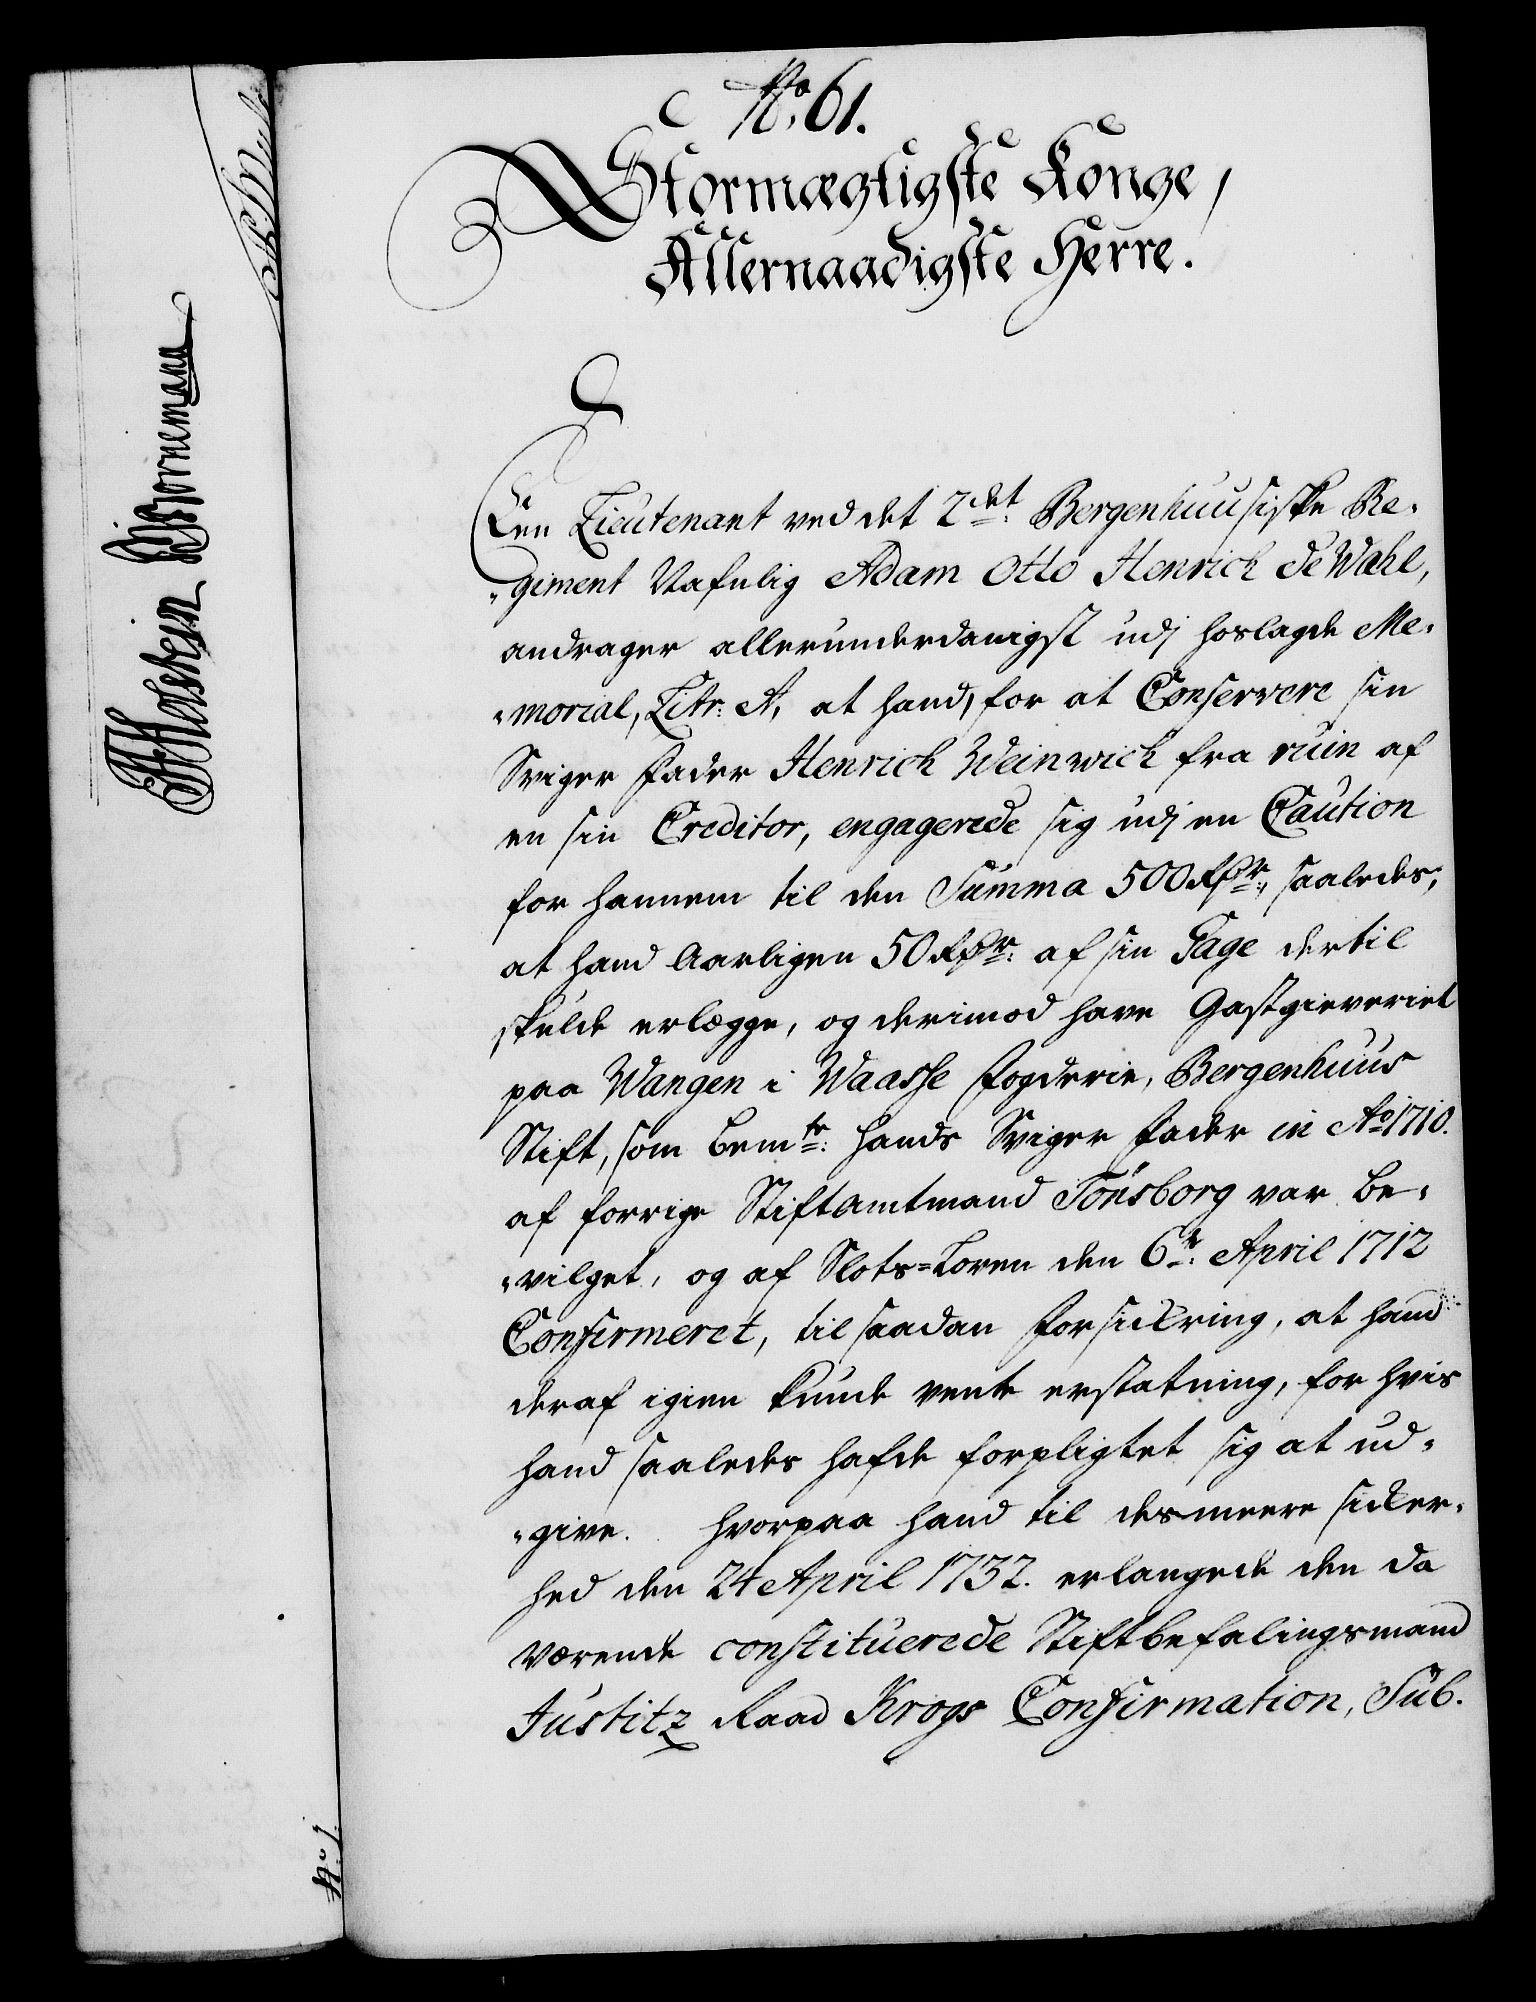 No. 61.
Stormægtigste Konge,
Allernaadigste Herre.
Een Lieutenant ved det 2det Bergenhuusiske Re-
-giment Nafnlig Adam Otto Henrich de Wahl,
andrager allerunderdanigst udj hoslagde Me-
-morial, Litr: A, at hand, for at Conservere sin
Sviger Fader Henrich Weinwich fra ruin af
en sin Creditor, engagerede sig udj en Caution
for hannem til den Summa 500 Rdr:, saaledes,
at hand Aarligen 50 Rdr: af sin Gage dertil
skulde erlægge, og derimod have Gastgieveriet
paa Wangen i Waasse Fogderie, Bergenhuus
Stift, som bemte: hands Sviger Fader in Ao 1710.
af forrige Stiftamtmand Tönsborg var be-
-vilget, og af Slots-Loven den 6te: April 1712
Confirmeret, til saadan Forsickring, at hand
deraf igien kunde vente erstatning, for hvis
hand saaledes hafde forpligtet sig at ud-
-give. Hvorpaa hand til desmeere sicker-
hed den 24 April 1732. erlangede den da
værende constituerede Stiftbefalingsmand
Justitz Raad Krogs Confirmation, Sub.
JHolstein Bornemann
No 1.